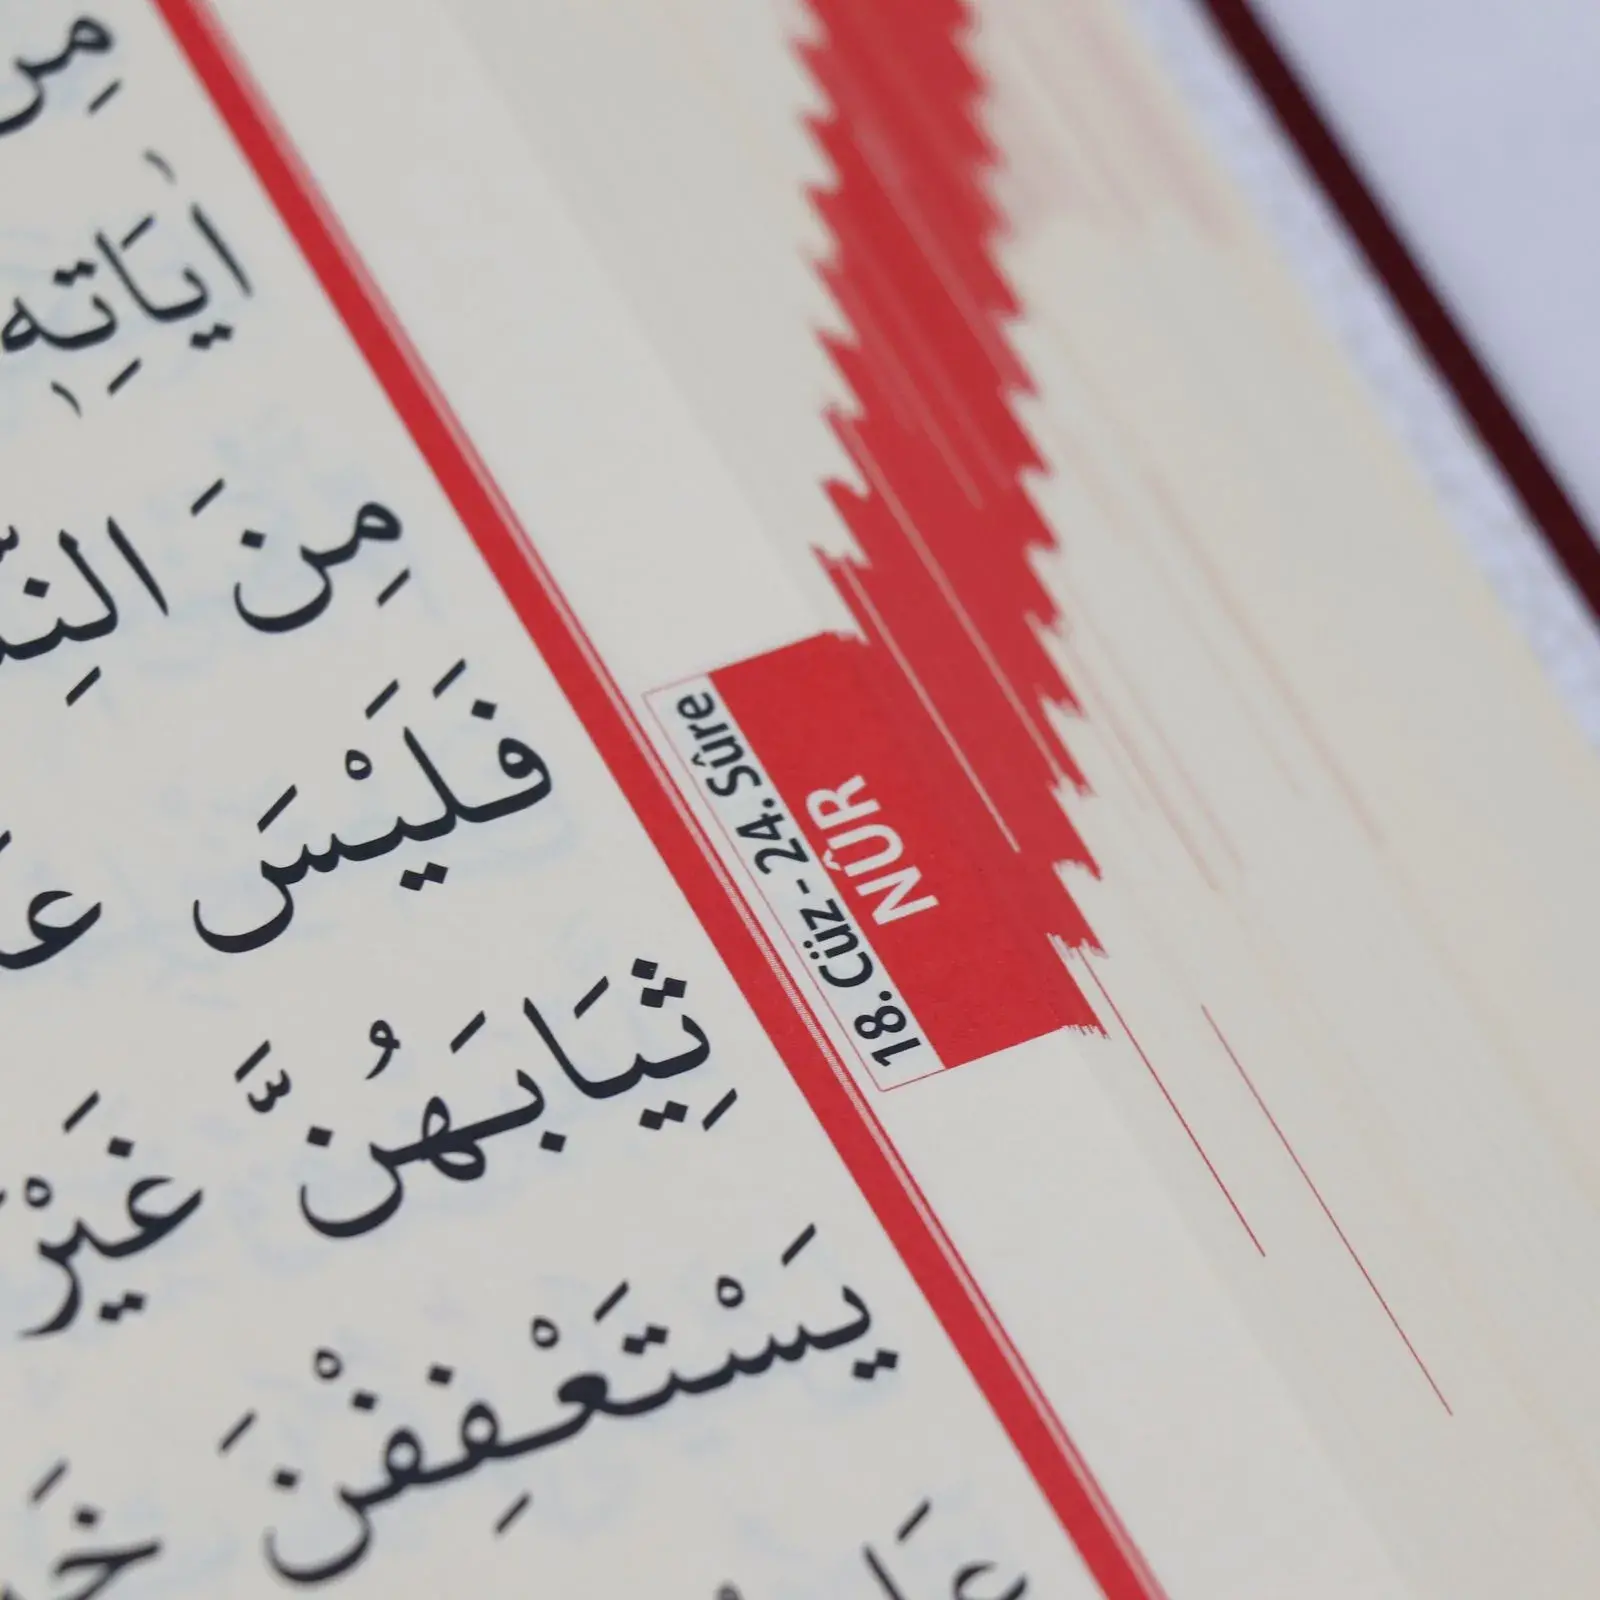 مِنْ
اٰيَاتِه۪
مِنَ
فَلَيْسَ
ثِيَابَهُنَّ غَيْرَ
يَسْتَعْفِفْنَ
18. Cüz - 24. Sûre
NÛR